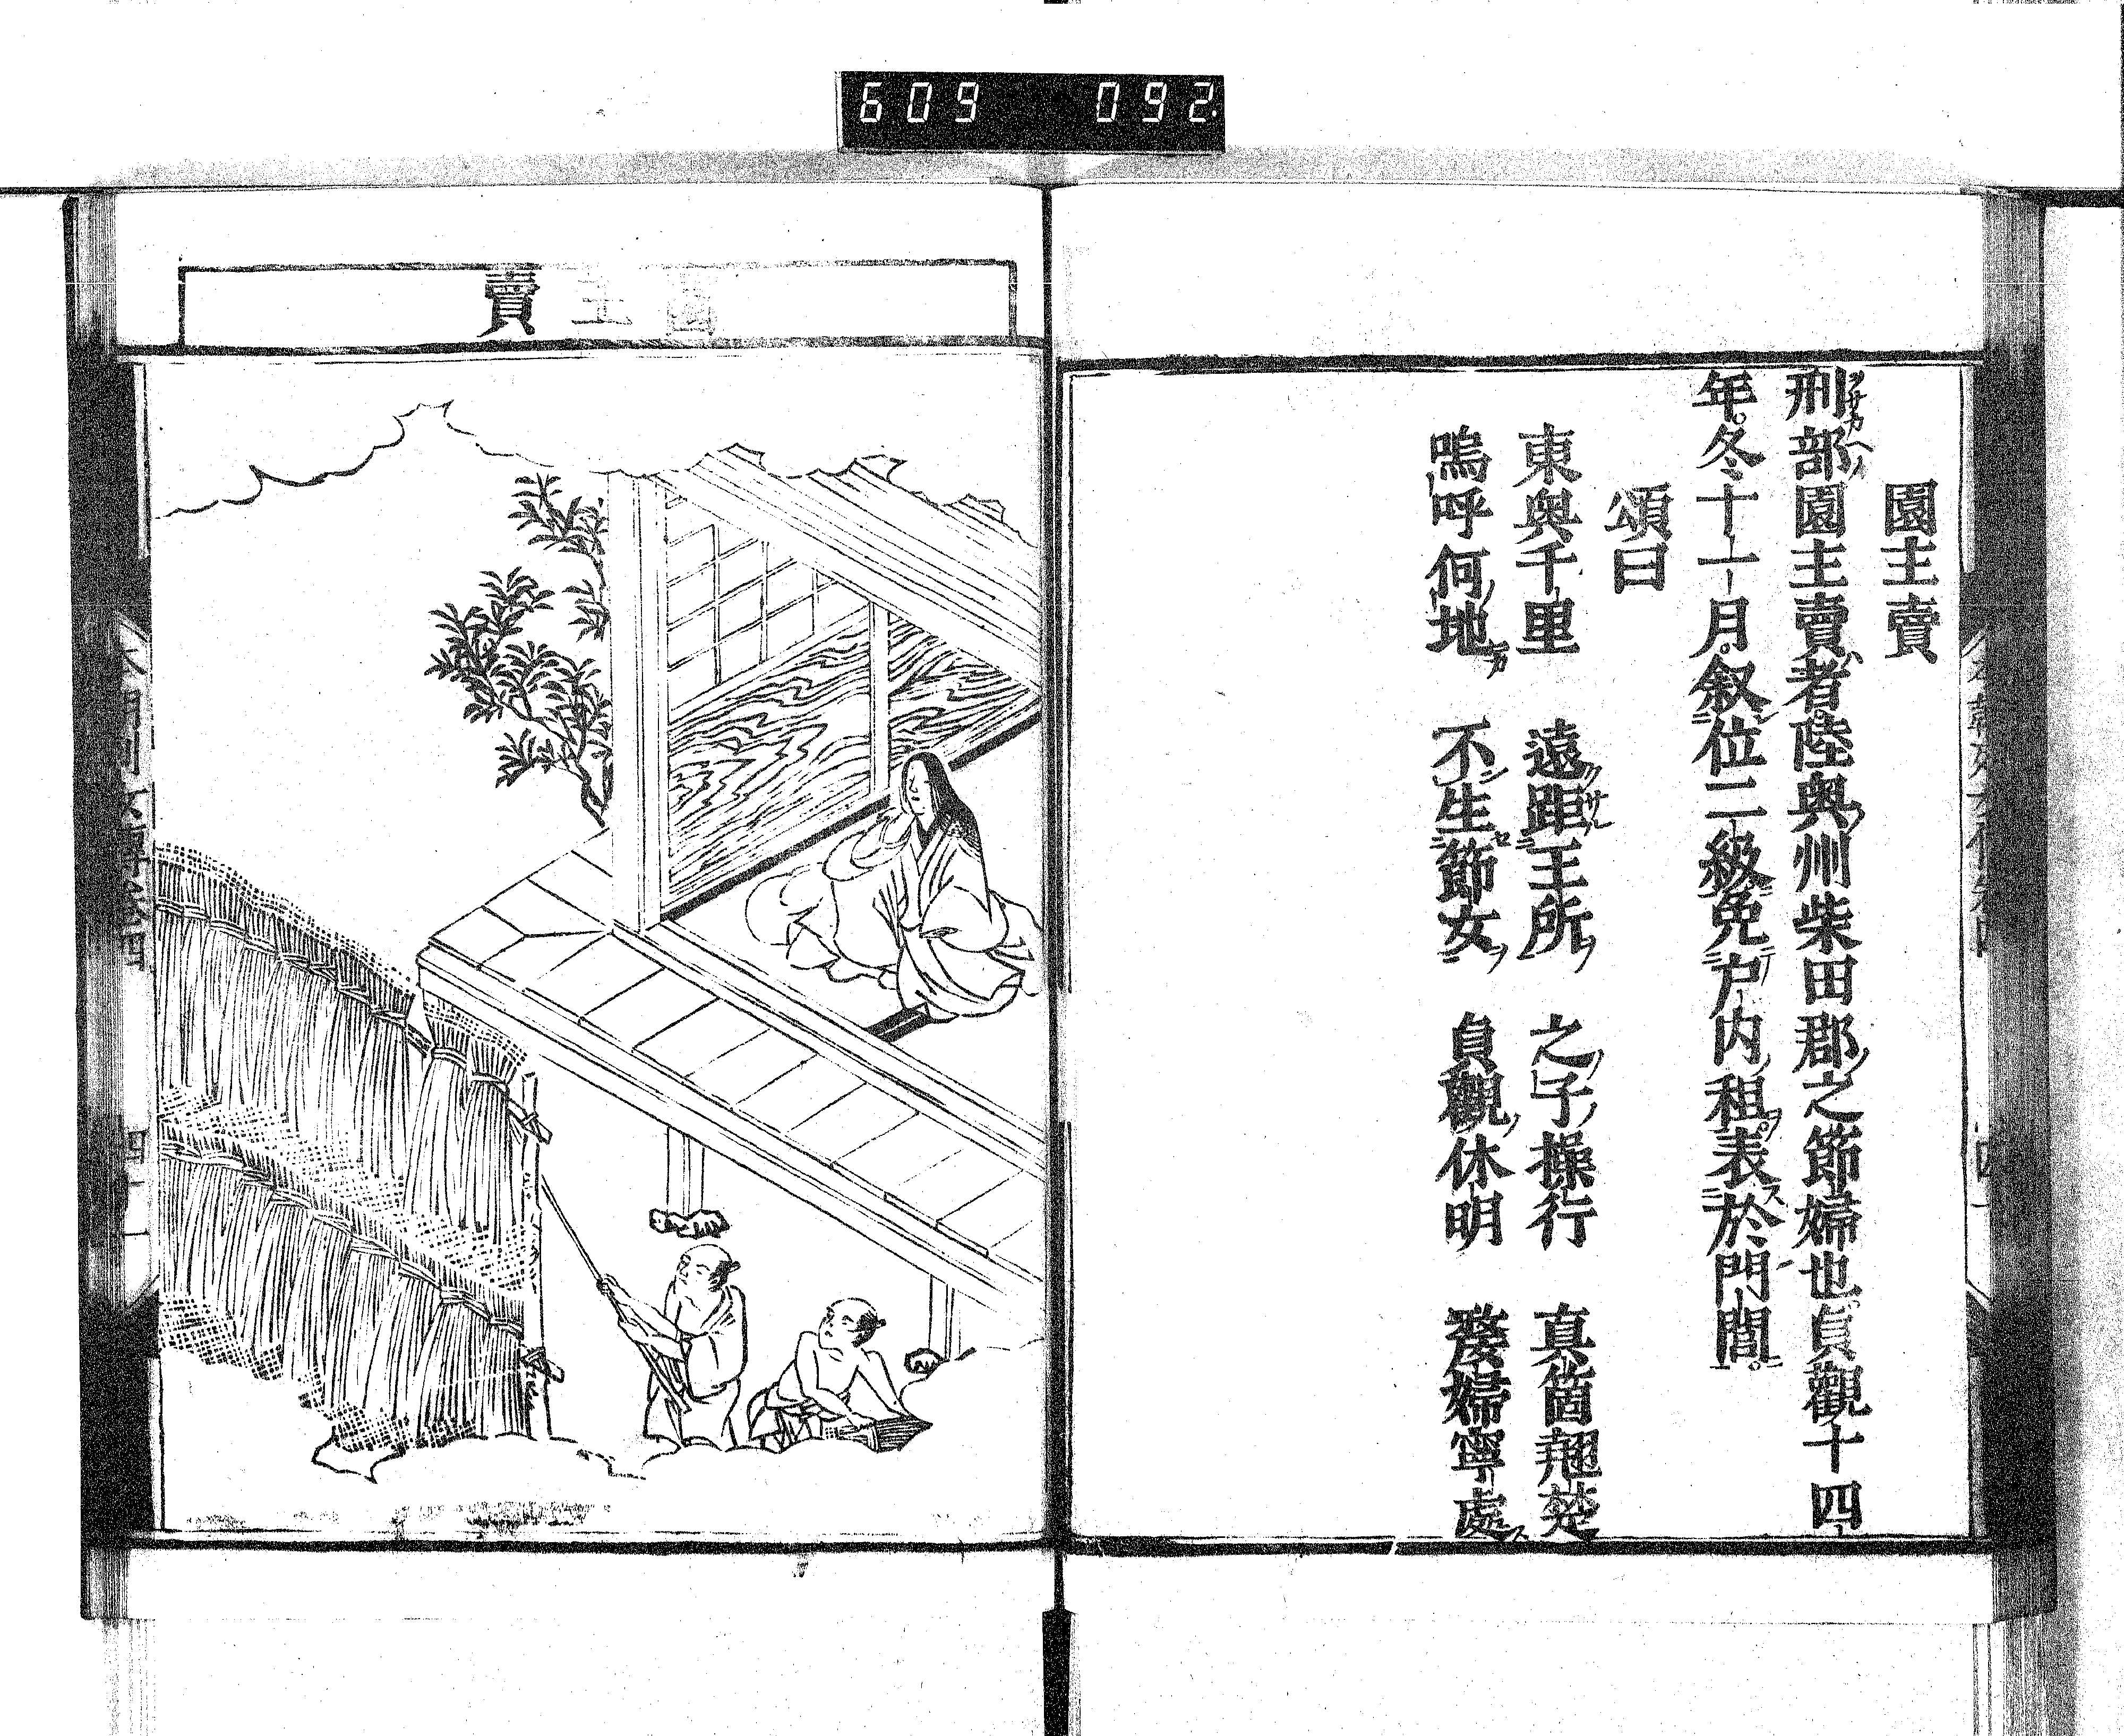 609 092
園主賣
刑部園主賣者陸奥州柴田郡之節婦也貞觀十四
年冬十一月叙位二級免戸内租表於門閭
頌曰
東與千里 遠距王所 之子操行 真箇翹楚
嗚呼何地 不生節女 貞觀休明 發婦寧處
園主賣